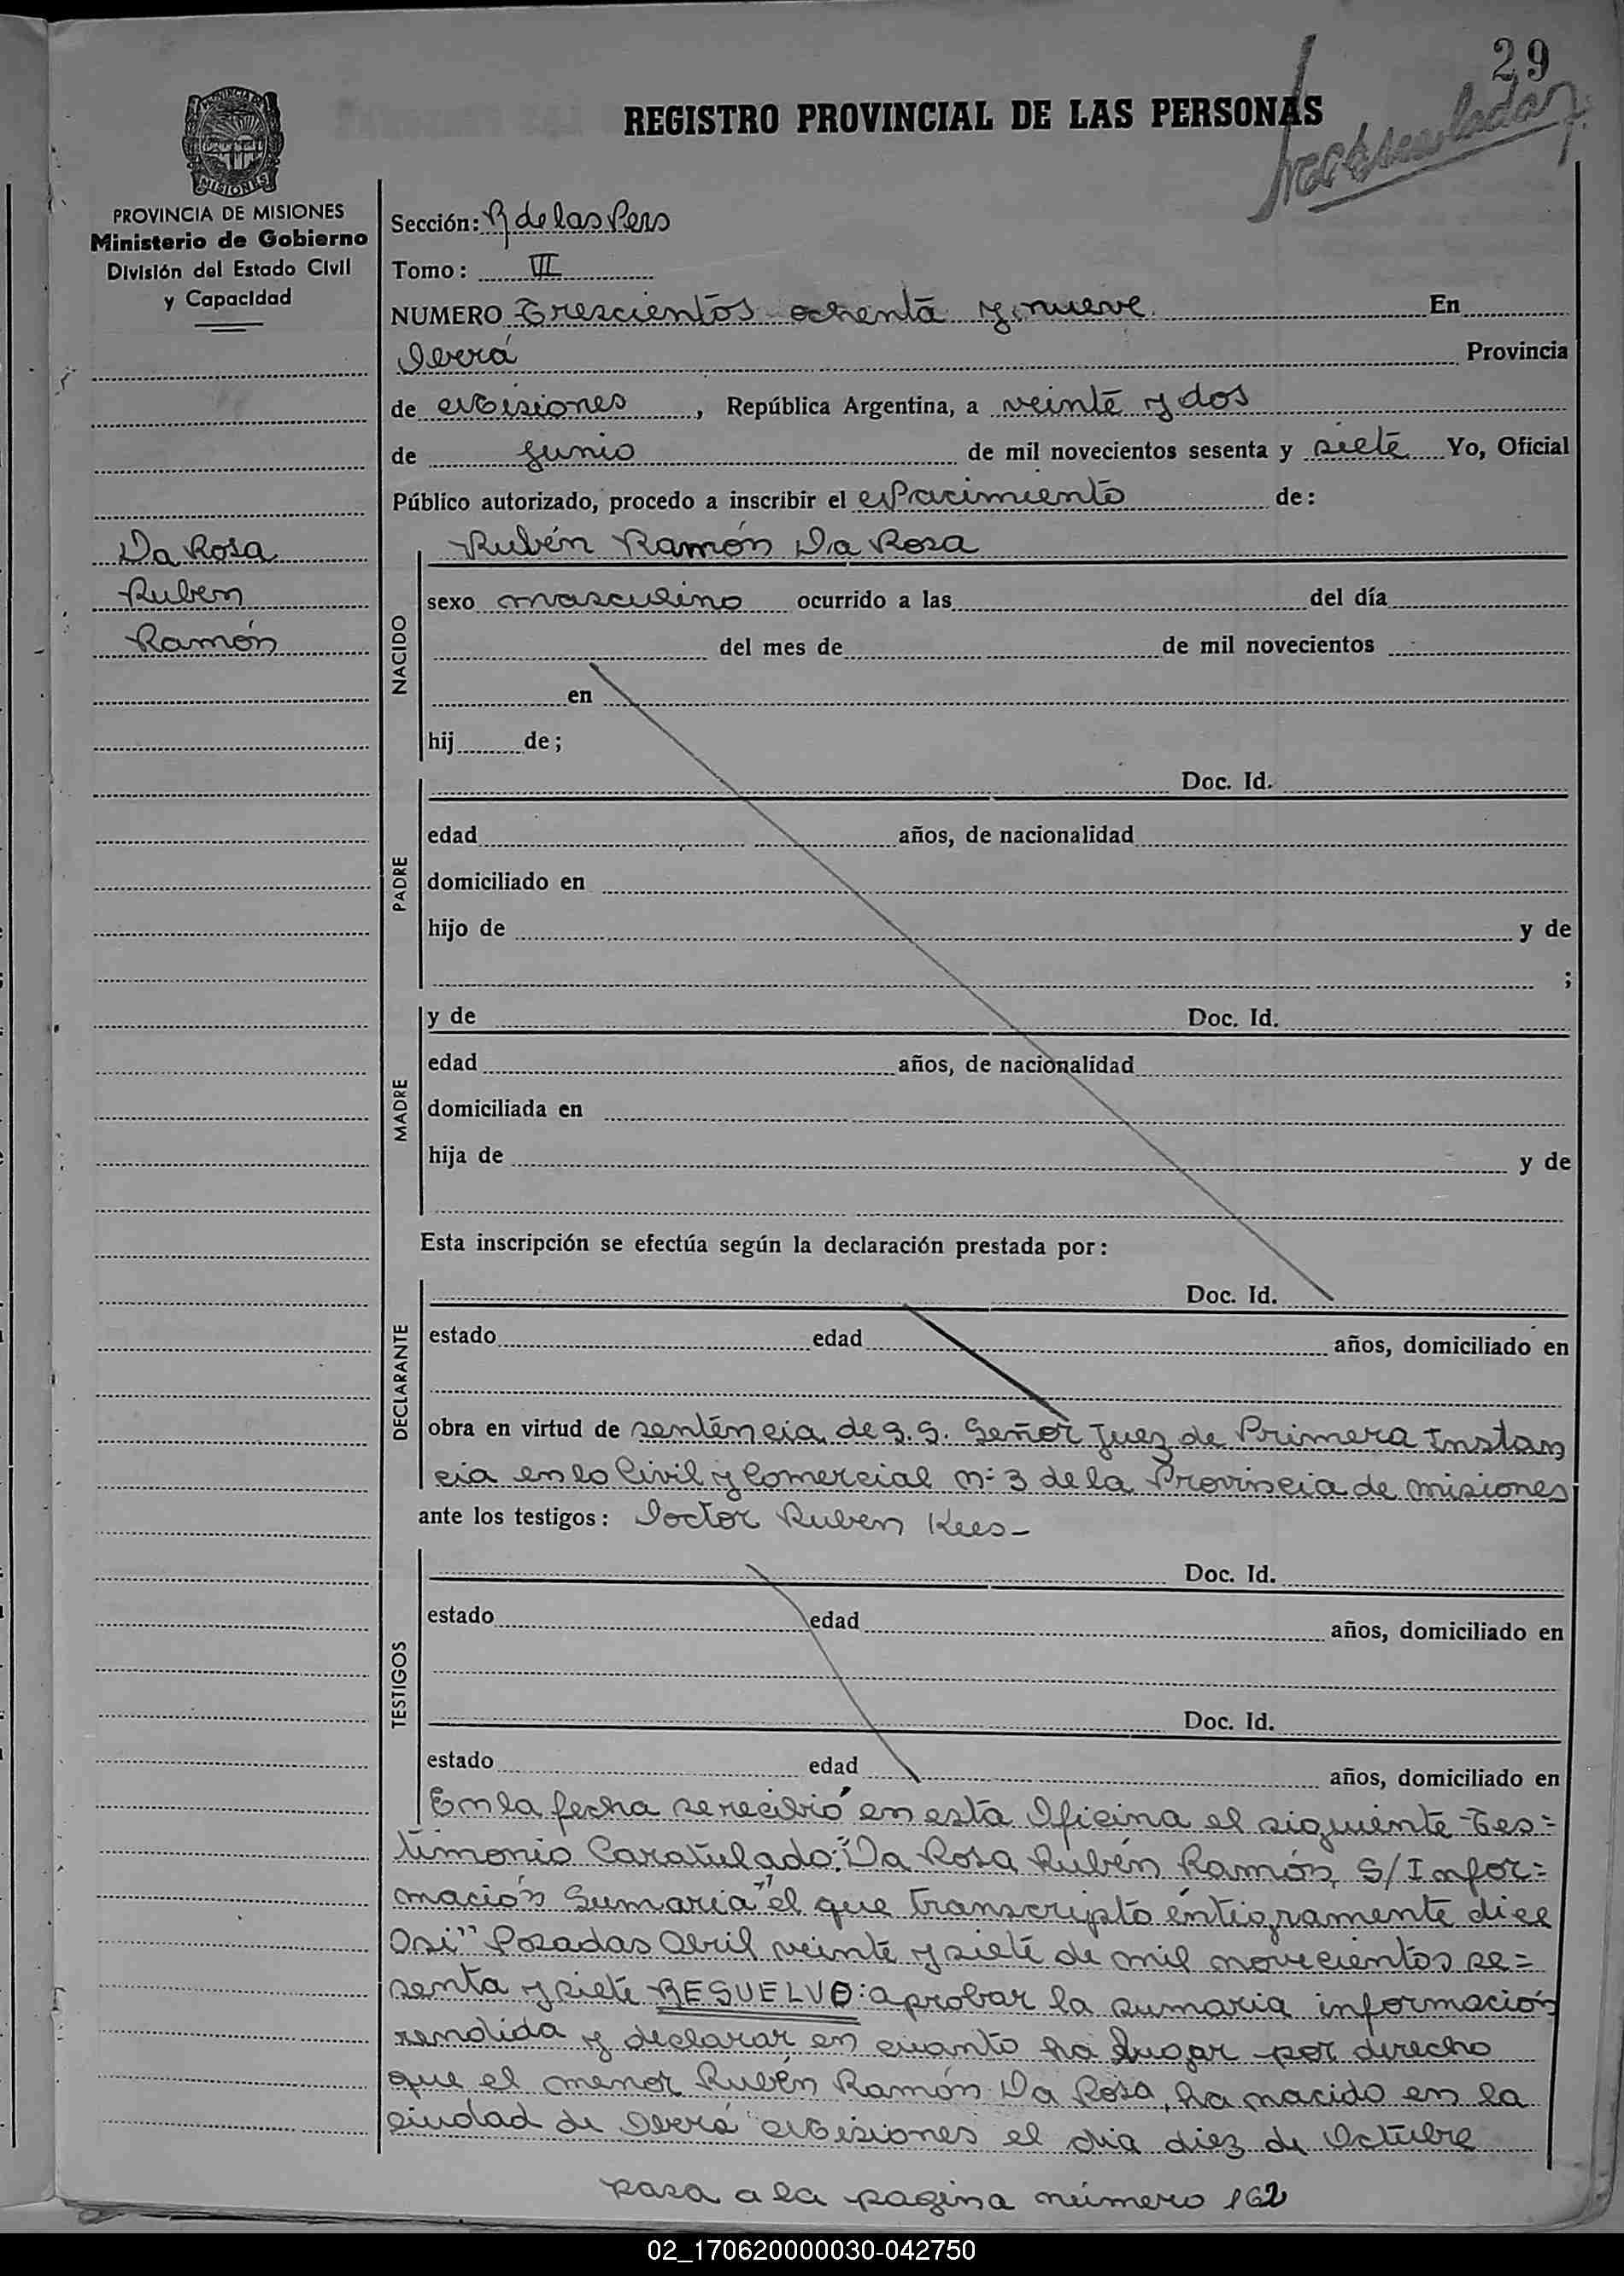 29
REGISTRO PROVINCIAL DE LAS PERSONAS
PROVINCIA DE MISIONES
Ministerio de Gobierno
División del Estado Civil
y Capacidad
Sección: R de las Pers
Tomo: VII
NUMERO Trescientos ochenta y nueve En
Oberá Provincia
de Misiones, República Argentina, a veinte y dos
de Junio de mil novecientos sesenta y siete Yo, Oficial
Público autorizado, procedo a inscribir el Nacimiento de:
Da Rosa
Ruben
Ramón
NACIDO
Rubén Ramón Da Rosa
sexo masculino ocurrido a las del día
del mes de de mil novecientos
en
hij de;
PADRE
Doc. Id.
edad años, de nacionalidad
domiciliado en
hijo de y de
;
MADRE
y de Doc. Id.
edad años, de nacionalidad
domiciliada en
hija de y de
Esta inscripción se efectúa según la declaración prestada por:
DECLARANTE
Doc. Id.
estado edad años, domiciliado en
obra en virtud de sentencia de S.S. Señor Juez de Primera Instan
cia en lo Civil y Comercial n: 3 de la Provincia de misiones
ante los testigos: Doctor Ruben Kees-
TESTIGOS
Doc. Id.
estado edad años, domiciliado en
Doc. Id.
estado edad años, domiciliado en
En la fecha se recibió en esta Oficina el siguiente Tes=
timonio Caratulado: "Da Rosa Rubén Ramón, S/Infor=
mación Sumaria" el que transcripto éntigramente dice
Asi" Posadas Abril veinte y siete de mil novecientos se=
senta y siete RESUELVO: aprobar la sumaria información
rendida y declarar en cuanto ha lugar por derecho
que el menor Rubén Ramón Da Rosa, ha nacido en la
ciudad de Oberá Misiones el dia diez de Octubre
pasa a la pagina número 162
02_170620000030-042750